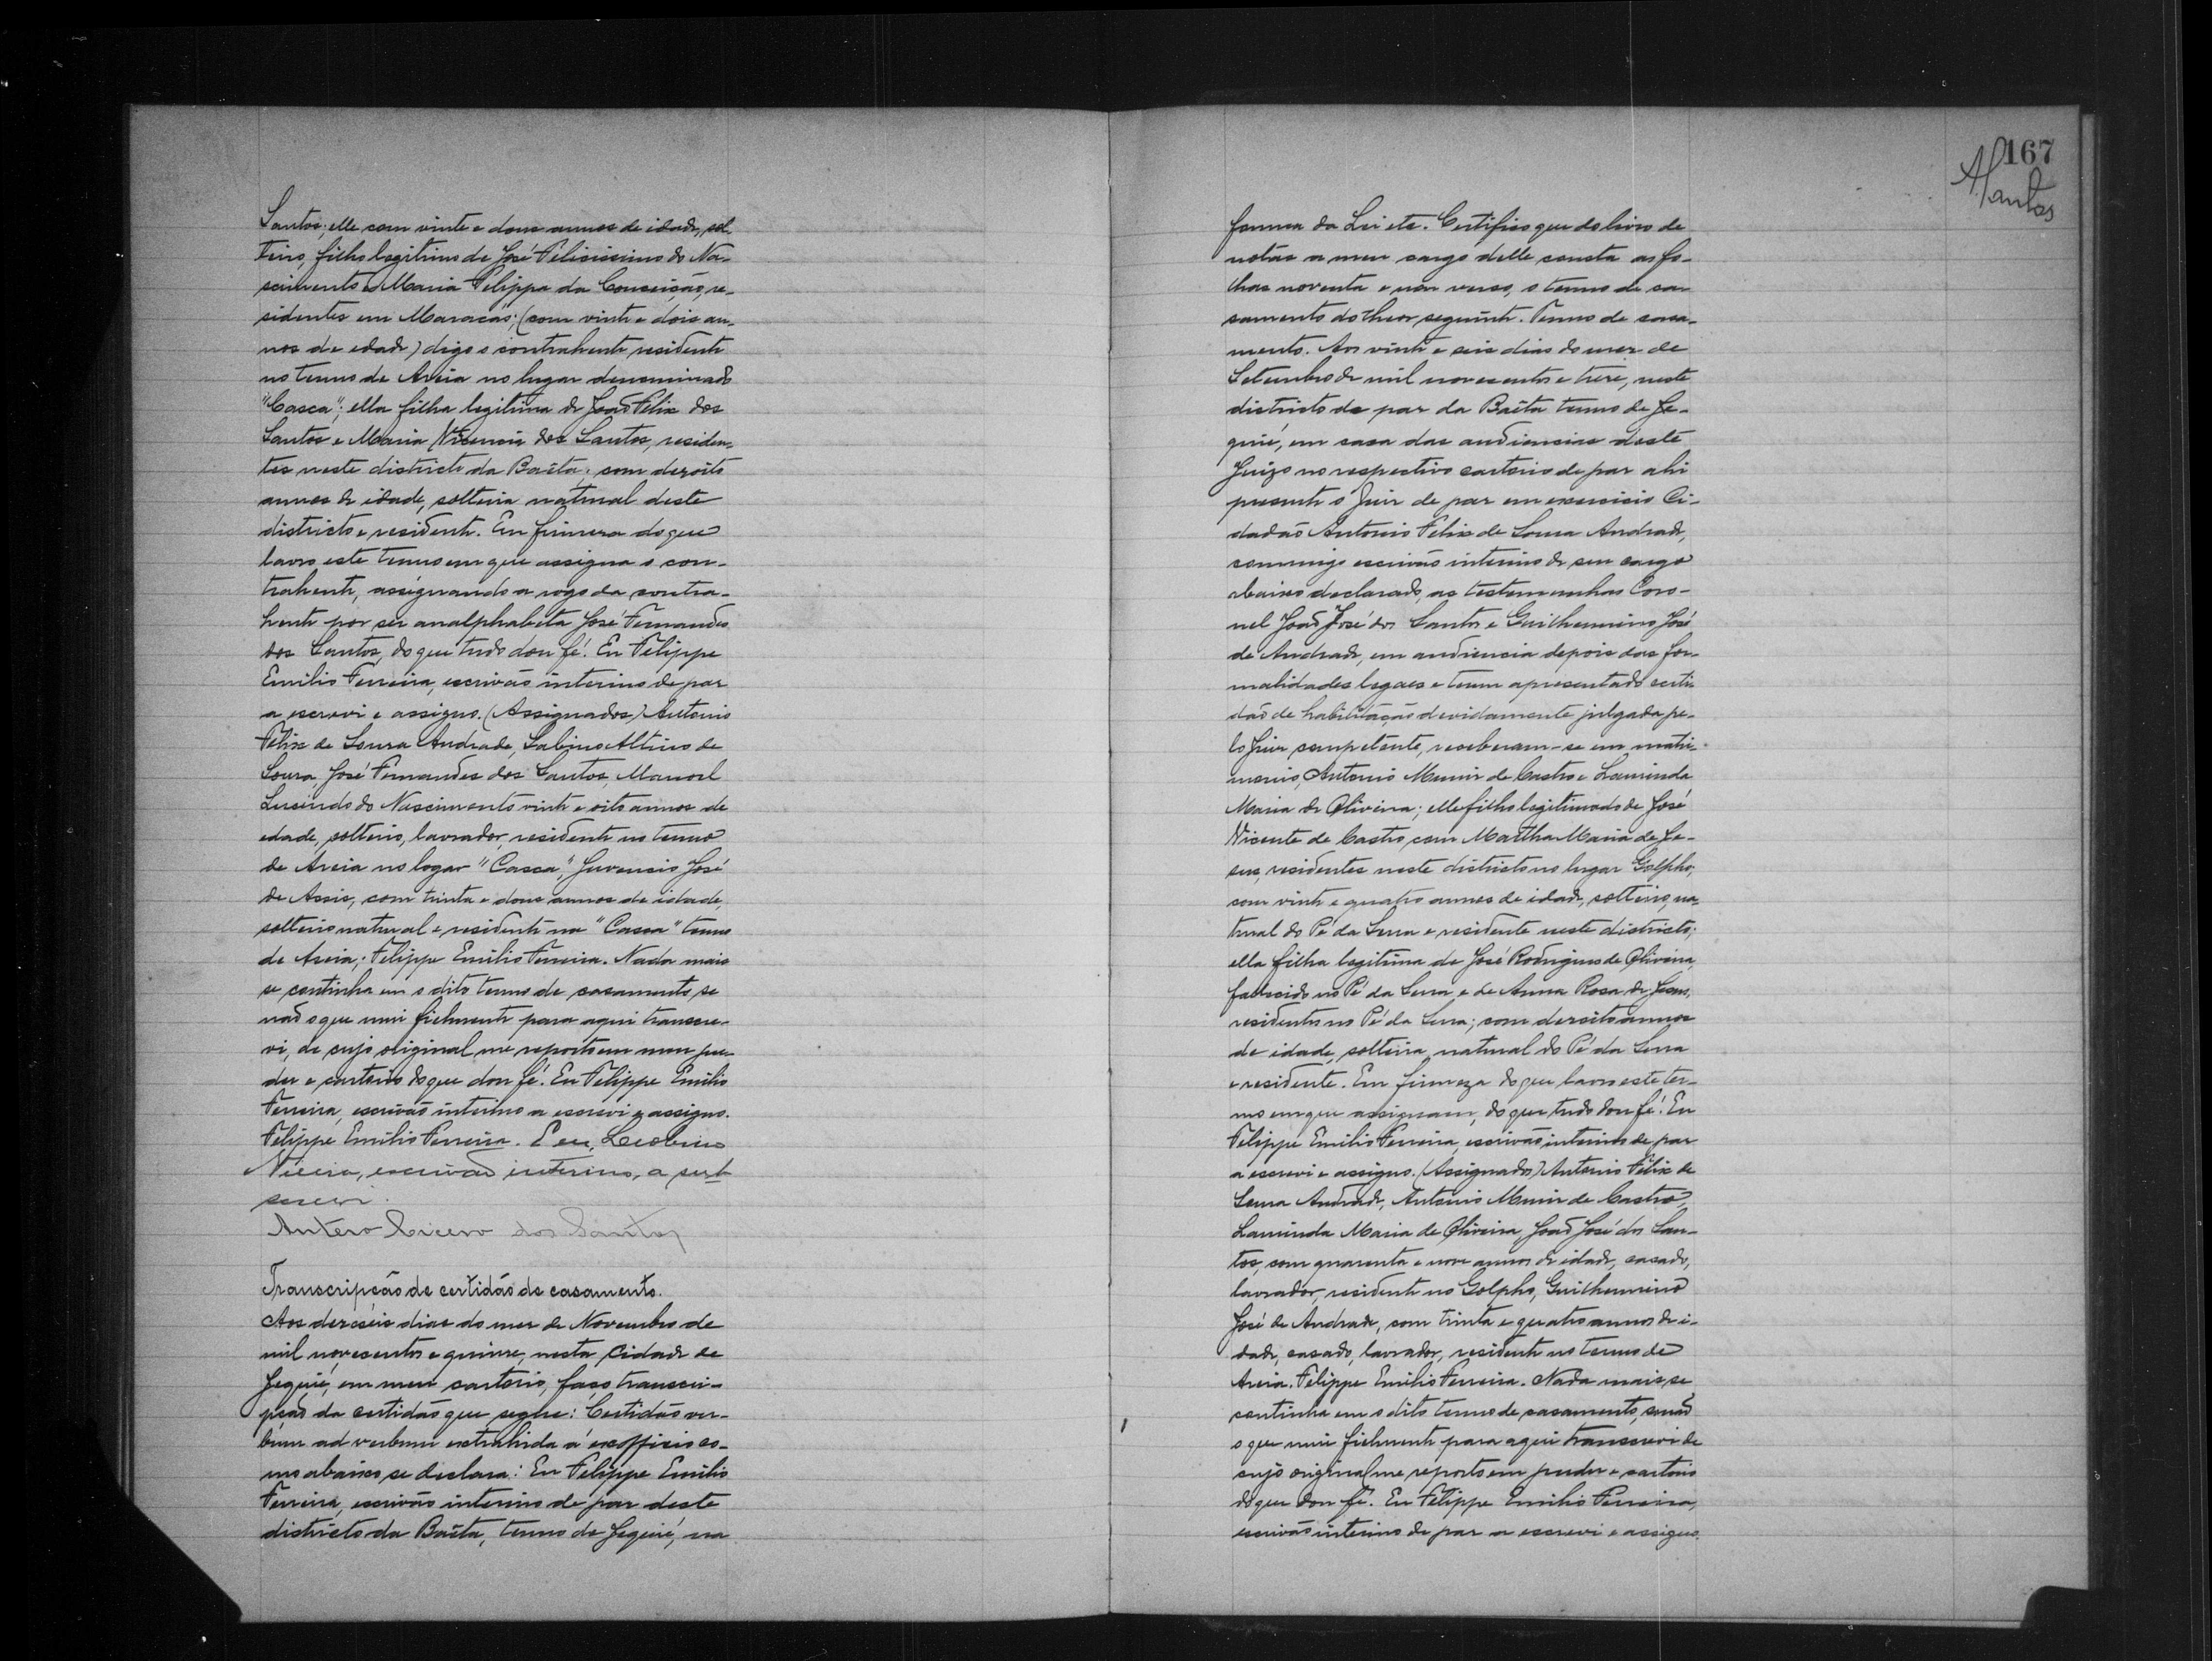 Santos; elle com vinte e dous annos de idade, sol-
teiro, filho legitimo de José Felicissimo do Na-
scimento e Maria Felippa da Conceição, re-
sidentes em Maracás; (com vinte e dois an-
nos de edade) digo o contrahente residente
no termo de Areia no lugar denominado
"Casca"; ella filha legitima de João Felix dos
Santos e Maria Vicencia dos Santos, residen-
tes neste districto da Baêta; com dezoito
annos de idade, solteira natural deste
districto e residente. Em firmeza do que
lavro este termo em que assigna o con-
trahente, assignando a rogo da contra-
hente por ser analphabeta José Fernandes
dos Santos, do que tudo dou fé. Eu Felippe
Emilio Ferreira, escrivão interino de paz
a escrevi e assigno. (Assignados) Antonio
Felix de Souza Andrade, Sabino Altino de
Souza, José Fernandes dos Santos, Manoel
Lucindo do Nascimento vinte e oito annos de
edade, solteiro, lavrador, residente no termo
de Areia no logar "Casca", Juvencio José
de Assis, com trinta e dous annos de idade,
solteiro natural e residente na "Casca" termo
de Areia; Felippe Emilio Ferreira. Nada mais
se continha em o dito termo de casamento se
não o que mui fielmente para aqui transcre-
vi, de cujo original me reporto em meu po-
der e cartorio do que dou fé. Eu Felippe Emilio
Ferreira, escrivão interino a escrevi e assigno.
Felippe Emilio Ferreira. E eu, Leobino
Vieira, escrivão interino, a sub
screvi.
Antero Cicero dos Santos
Transcripção de certidão de casamento.
Aos dezeseis dias do mez de Novembro de
mil novecentos e quinze, nesta Cidade de
Jequié, em meu cartorio, faço transcri-
pção da certidão que segue: Certidão ver-
bum ad verbum extrahida a ex officio co-
mo abaixo se declara: Eu Felippe Emilio
Ferreira, escrivão interino de paz deste
districto da Baêta, termo de Jequié, na
167
ASantos
forma da Lei etc. Certifico que do livro de
notas a meu cargo delle consta as fo-
lhas noventa e um verso, o termo de ca-
samento do theor seguinte. Termo de casa-
mento. Aos vinte e seis dias do mez de
Setembro de mil novecentos e treze, neste
districto de paz da Baêta termo de Je-
quié, em casa das audiencias deste
Juizo no respectivo cartorio de paz ahi
presente o Juiz de paz em exercicio Ci-
dadão Antonio Felix de Souza Andrade,
commigo escrivão interino de seu cargo
abaixo declarado, as testemunhas Coro-
nel João José dos Santos e Guilhermino José
de Andrade, em audiencia depois das for-
malidades legaes e terem apresentado certi-
dão de habilitação devidamente julgada pe-
lo Juiz competente, receberam-se em matri-
monio, Antonio Muniz de Castro e Laurinda
Maria de Oliveira; elle filho legitimado de José
Vicente de Castro com Martha Maria de Je-
sus, residentes neste districto no lugar Golpho,
com vinte e quatro annos de idade, solteiro, na-
tural do Pé da Serra e residente neste districto;
ella filha legitima de José Rodrigues de Oliveira,
fallecido no Pé da Serra e de Anna Rosa de Jesus,
residentes no Pé da Serra; com dezoito annos
de idade, solteira, natural do Pé da Serra
e residente. Em firmeza do que lavro este ter-
mo em que assignam, do que tudo dou fé. Eu
Felippe Emilio Ferreira, escrivão interino de paz
a escrevi e assigno. (Assignados) Antonio Felix de
Souza Andrade, Antonio Muniz de Castro,
Laurinda Maria de Oliveira, João José dos San-
tos, com quarenta e nove annos de idade, casado,
lavrador, residente no Golpho, Guilhermino
José de Andrade, com trinta e quatro annos de i-
dade, casado, lavrador, residente no termo de
Areia. Felippe Emilio Ferreira. Nada mais se
continha em o dito termo de casamento, senão
o que mui fielmente para aqui transcrevi de
cujo original me reporto em poder e cartorio
do que dou fé. Eu Felippe Emilio Ferreira,
escrivão interino de paz a escrevi e assigno.